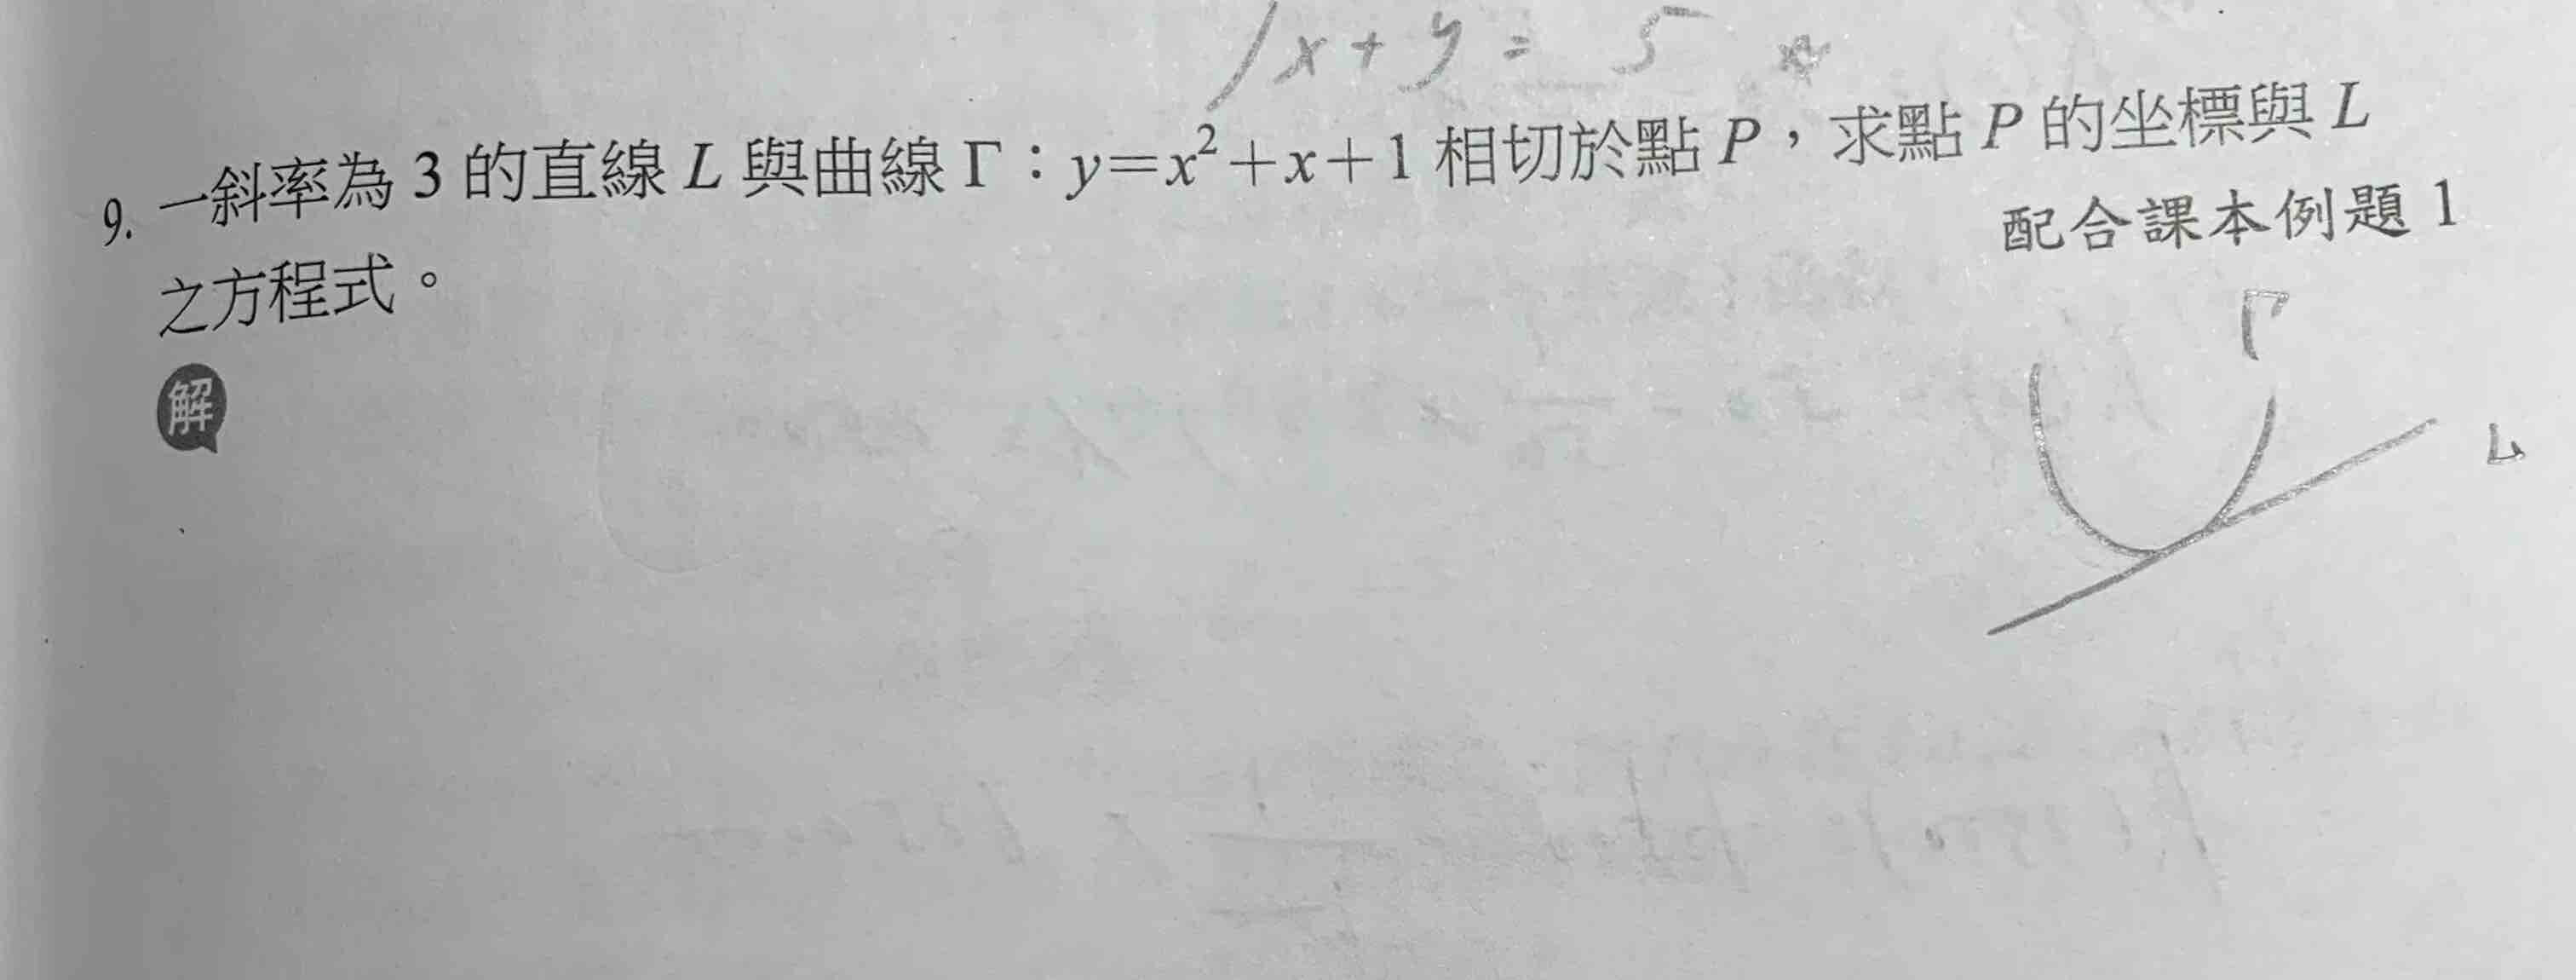 x+y=5
9. 一斜率為 3 的直線 L 與曲線 Γ：y=x²+x+1 相切於點 P，求點 P 的坐標與 L
之方程式。
配合課本例題 1
解
Γ
L